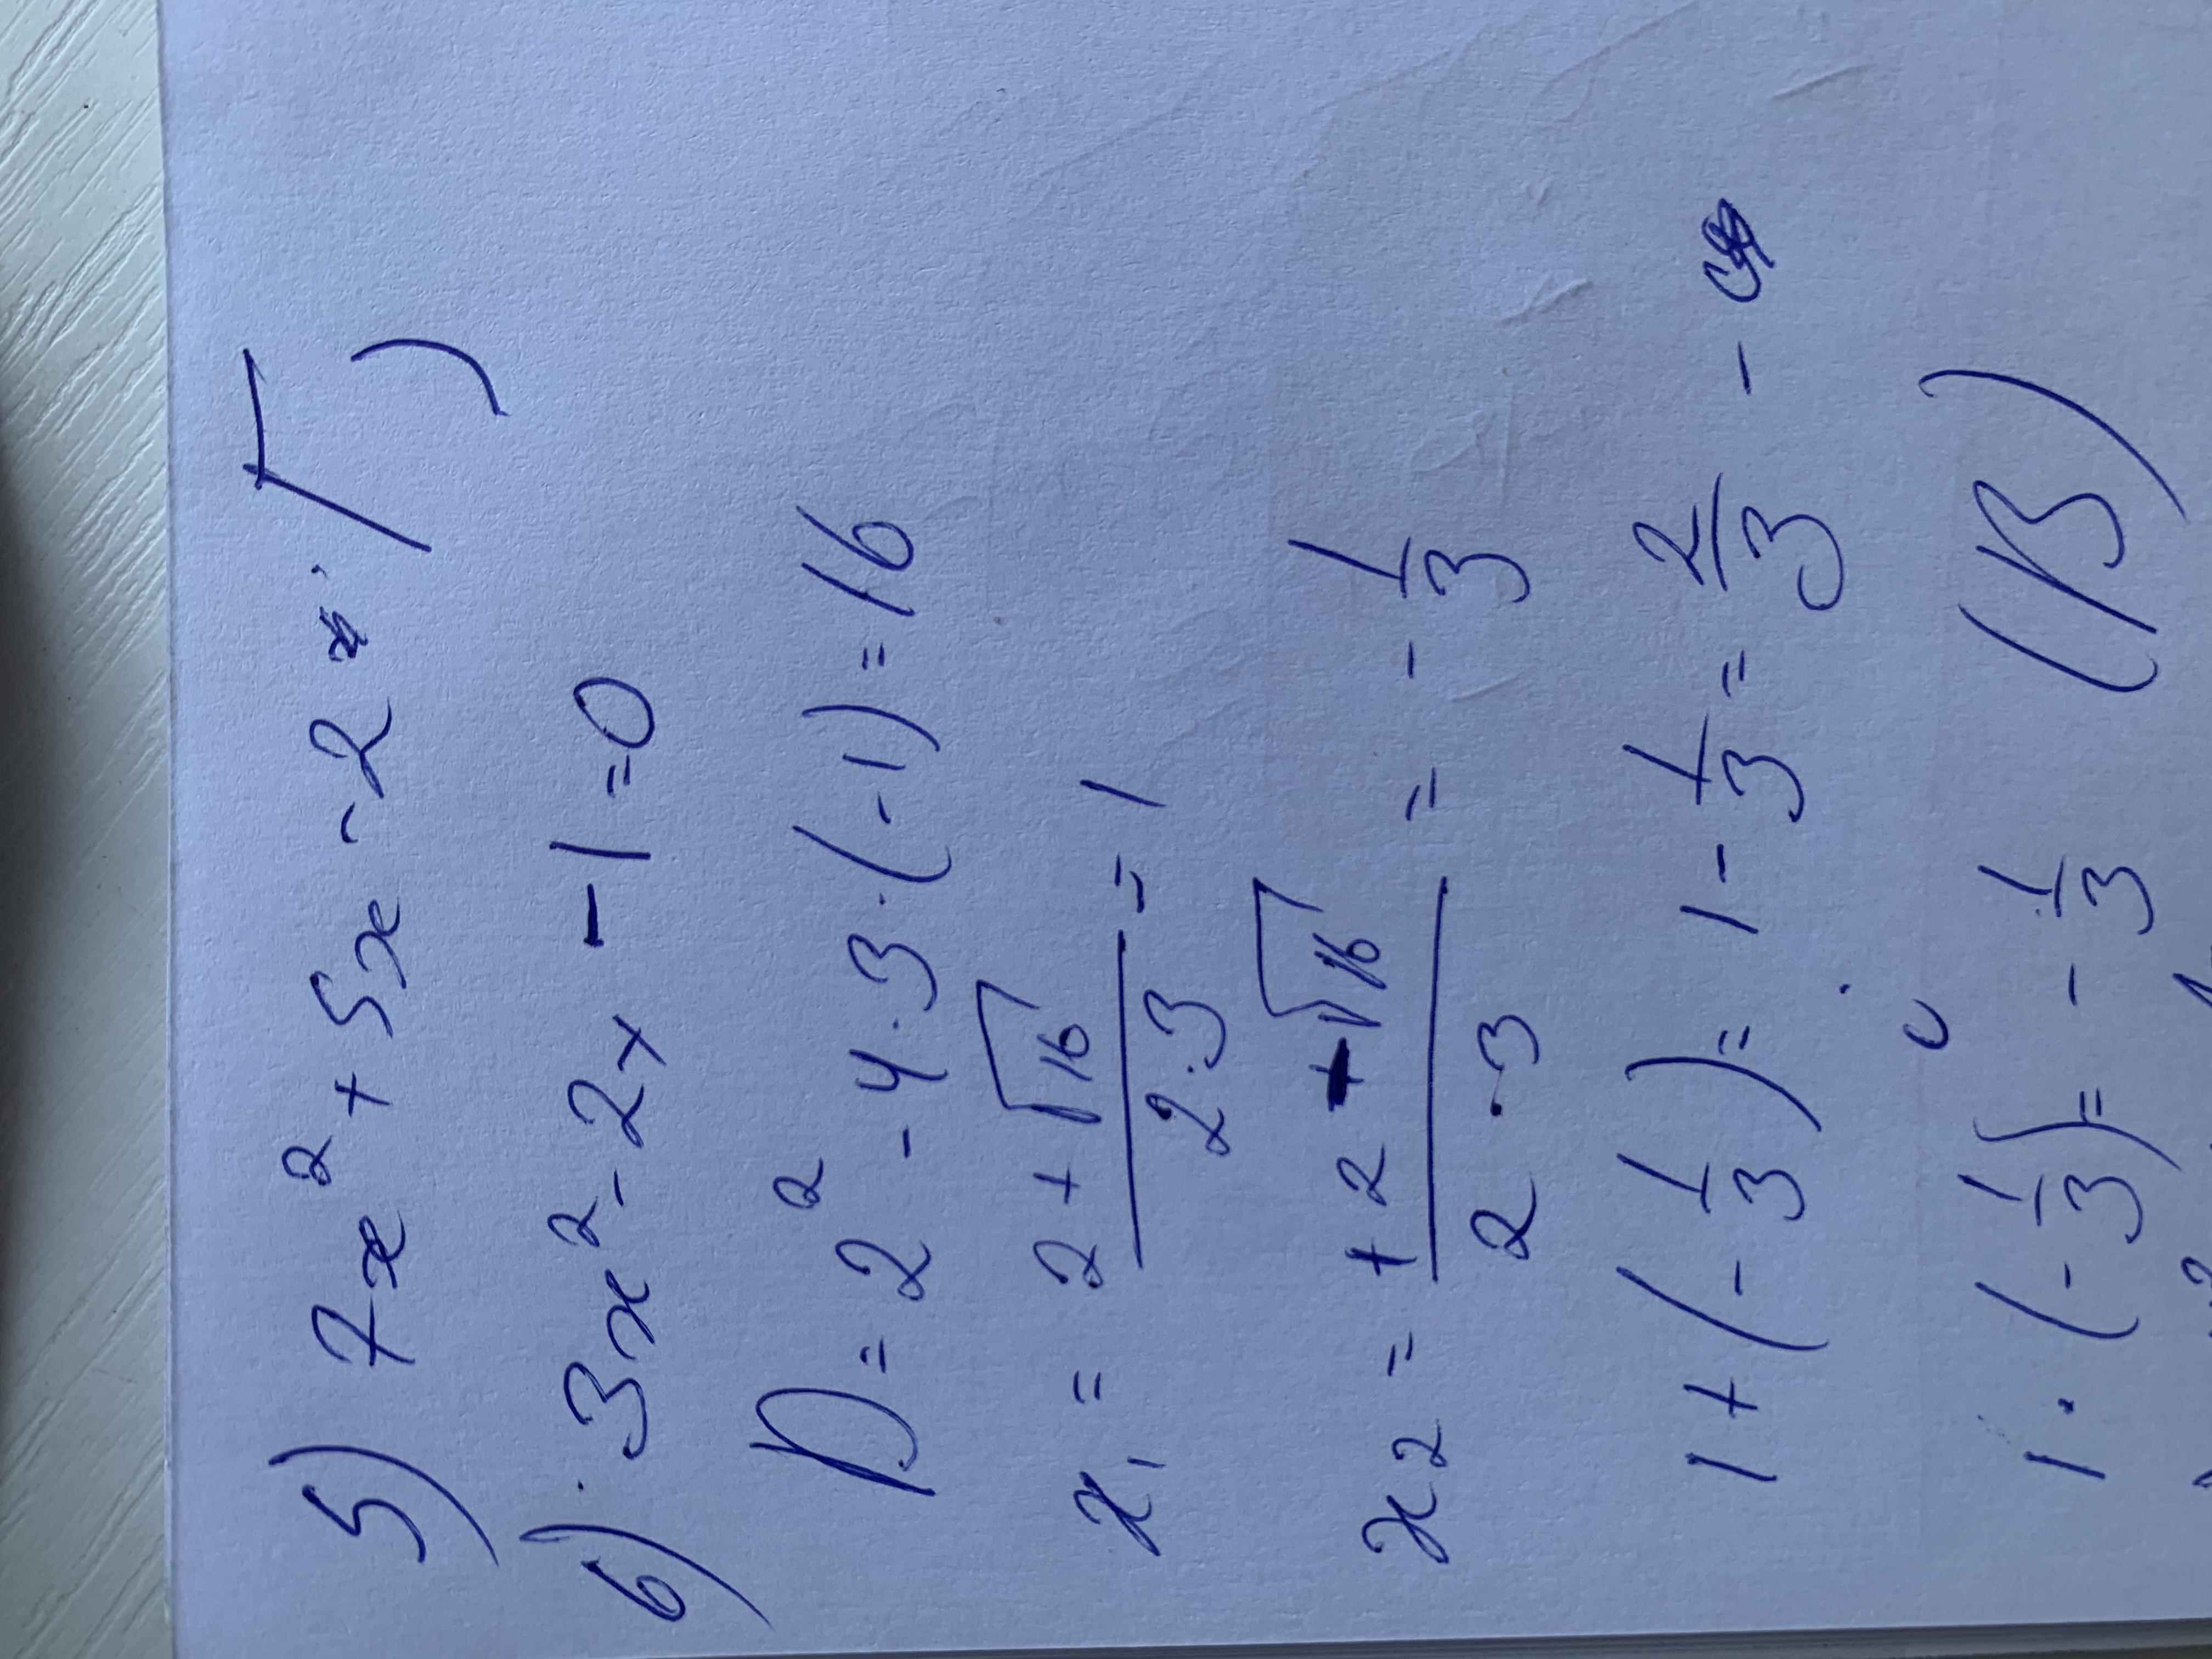 5) 7x² + 5x - 2 Г)
6) 3x² - 2x - 1 = 0
D = 2² - 4·3·(-1) = 16
x₁ = (2 + √16)/(2·3) = 1
x₂ = (+2 - √16)/(2·3) = -1/3
1 + (-1/3) = 1 - 1/3 = 2/3 -
1·(-1/3) = -1/3 (В)